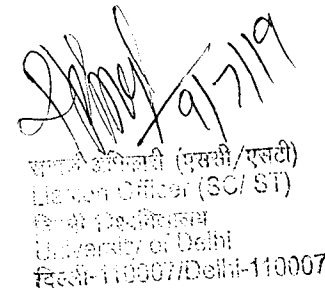 9/7/19
सम्पर्क अधिकारी (एससी/एसटी)
Liaison Officer (SC/ ST)
दिल्ली विश्वविद्यालय
University of Delhi
दिल्ली-110007/Delhi-110007